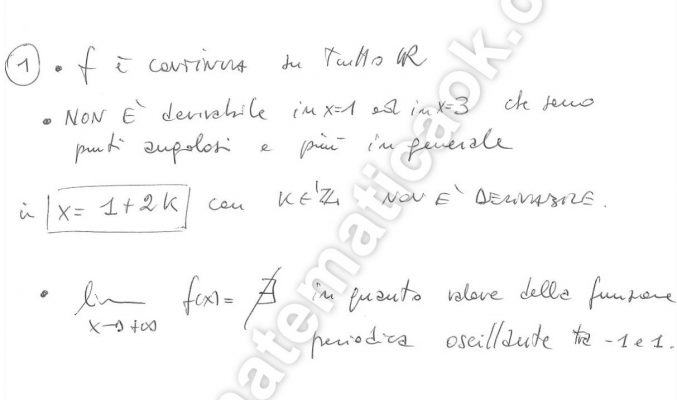 ① • f è continua su tutto ℝ
• NON È derivabile in x=1 ed in x=3 che sono
punti angolosi e più in generale
in x = 1+2k con k∈ℤ NON È DERIVABILE.
• lim f(x) = ∄ in quanto valore della funzione
x→+∞ periodica oscillante tra -1 e 1.
matematicaok.c